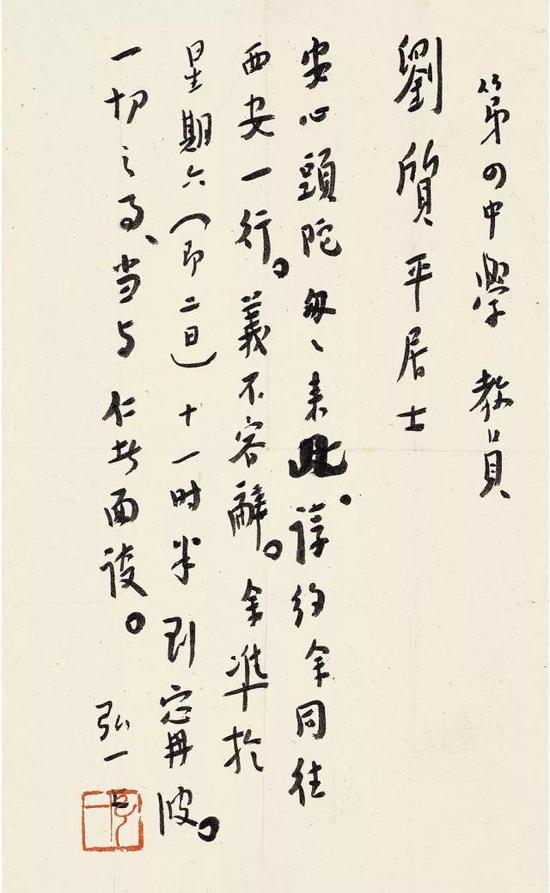 第四中學 教員
劉質平居士
安心頭陀匆々来此。諄約余同往
西安一行。義不容辭。余準於
星期六（即二日）十一时半到寗波。
一切之事、当与仁者面談。
弘一